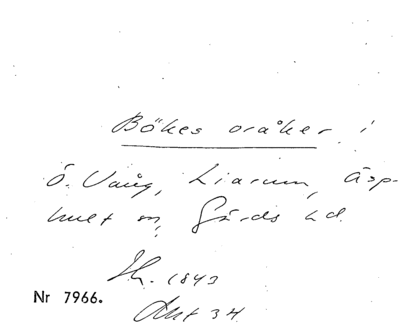 Bökes oråker i
Ö. Vång, Liarum, Äsp-
hult sn, Gärds hd.
1843
Nr 7966.
Akt 34